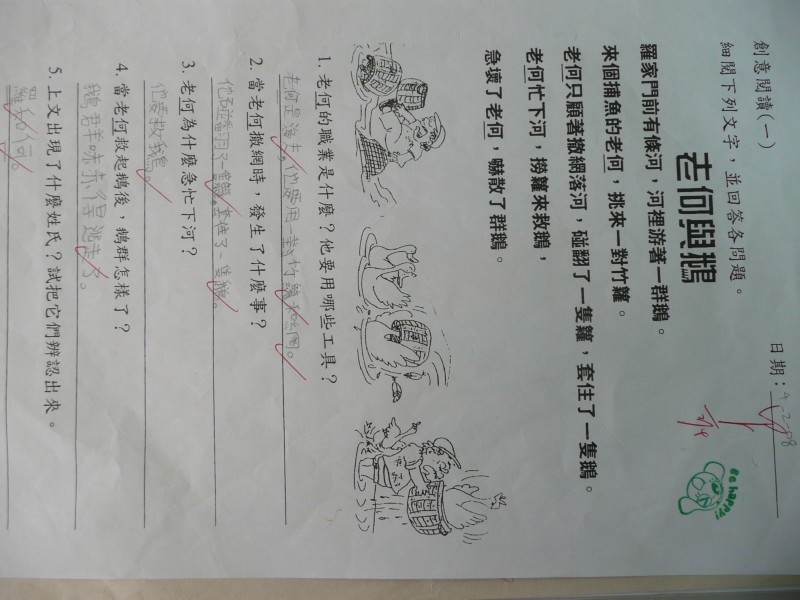 創意閱讀(一)
日期：4-2-08
細閱下列文字，並回答各問題。
老何與鵝
Be happy!
羅家門前有條河，河裡游著一群鵝。
來個捕魚的老何，挑來一對竹籮。
老何只顧著撒網落河，碰翻了一隻籮，套住了一隻鵝。
老何忙下河，撈籮來救鵝，
急壞了老何，嚇散了群鵝。
1. 老何的職業是什麼？他要用哪些工具？
老何是漁夫。他要用一對竹籮和魚網。
2. 當老何撒網時，發生了什麼事？
他碰翻了一隻籮，套住了一隻鵝。
3. 老何為什麼急忙下河？
他要救鵝。
4. 當老何救起鵝後，鵝群怎樣了？
鵝群嚇得逃走了。
5. 上文出現了什麼姓氏？試把它們辨認出來。
羅和何。